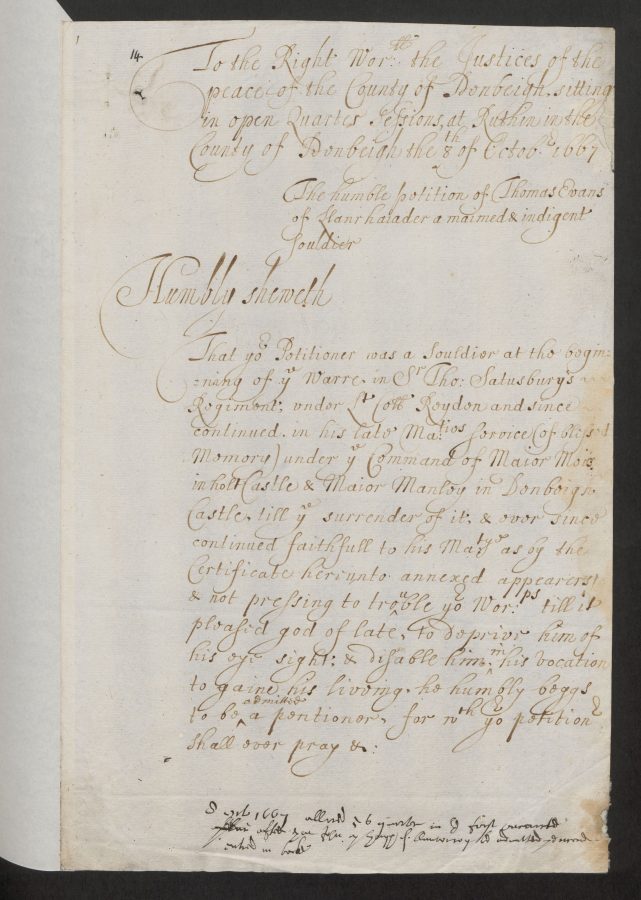 14
To the Right Wor:tt the Justices of the
peace of the County of Denbeigh sitting
in open Quarter Sessions, at Ruthin in the
County of Denbeigh the 8th of Octobr 1667
The humble petition of Thomas Evans
of Llanrhaiader a maimed & indigent
souldier
Humbly sheweth
That yor Petitioner was a souldier at the begin=
=ning of ye Warre in Sr Tho: Salusburys
Regiment, under Lt Coll Roydon and since
continued in his late Maties service (of blessed
Memory) under ye Command of Maior
in holt Castle & Maior Manley in Denbeigh
Castle, till ye surrender of it, & ever since
continued faithfull to his Matye as by the
Certificate hereunto annexed appeareth
& not pressing to trouble yor Wor:ps till it
pleased god of late, to deprive him of
his eye sight; & disable him in his vocation
to gaine his liveing, he humbly beggs
to be admitted a pentioner, for wth yor petitionr
shall ever pray &:
8 1667 allowed in first
after
entred in booke